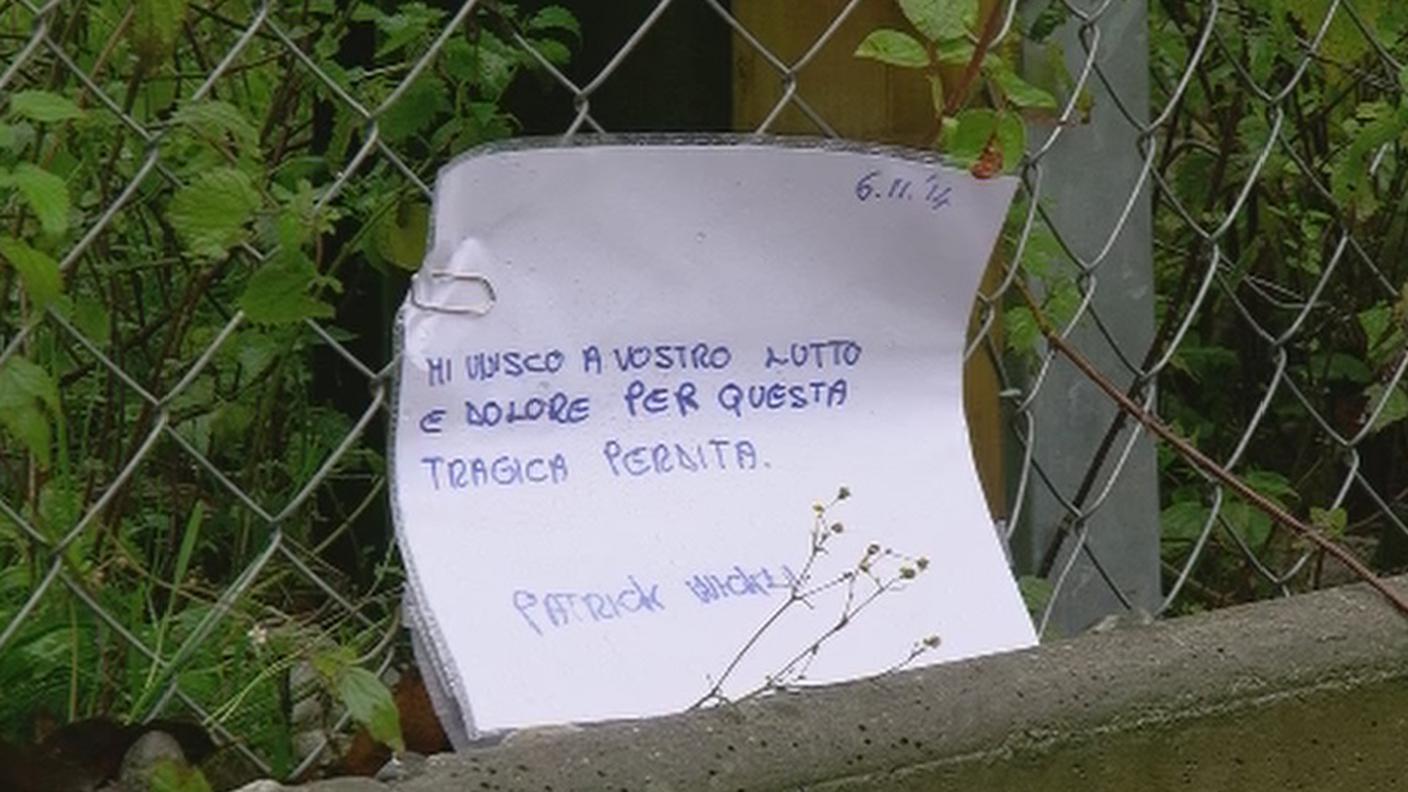 6.11.'14
MI UNISCO A VOSTRO LUTTO
E DOLORE PER QUESTA
TRAGICA PERDITA.
PATRICK